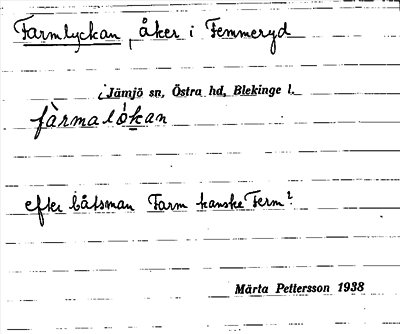 Farmlyckan, åker i Femmeryd
i Jämjö sn, Östra hd, Blekinge l.
fàrmalókan
efter båtsman Farm kanske Ferm?
Märta Pettersson 1938